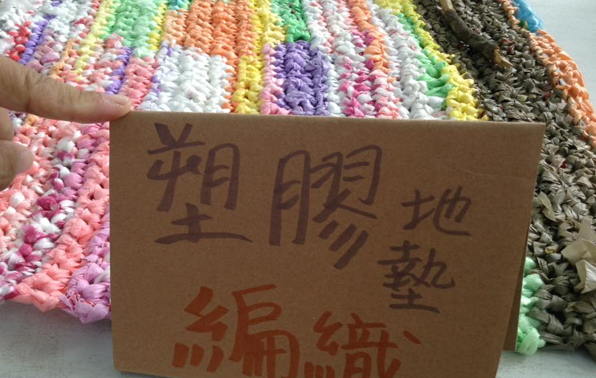 塑膠地墊
編織